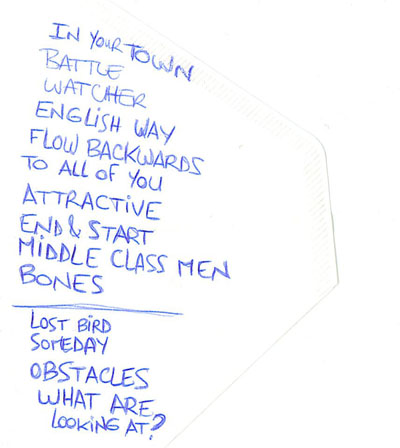 IN YOUR TOWN
BATTLE
WATCHER
ENGLiSH WAY
FLOW BACKWARDS
TO ALL OF YOU
ATTRACTiVE
END & START
MiDDLE CLASS MEN
BONES
LOST BiRD
SOMEDAY
OBSTACLES
WHAT ARE
LOOKiNG AT?